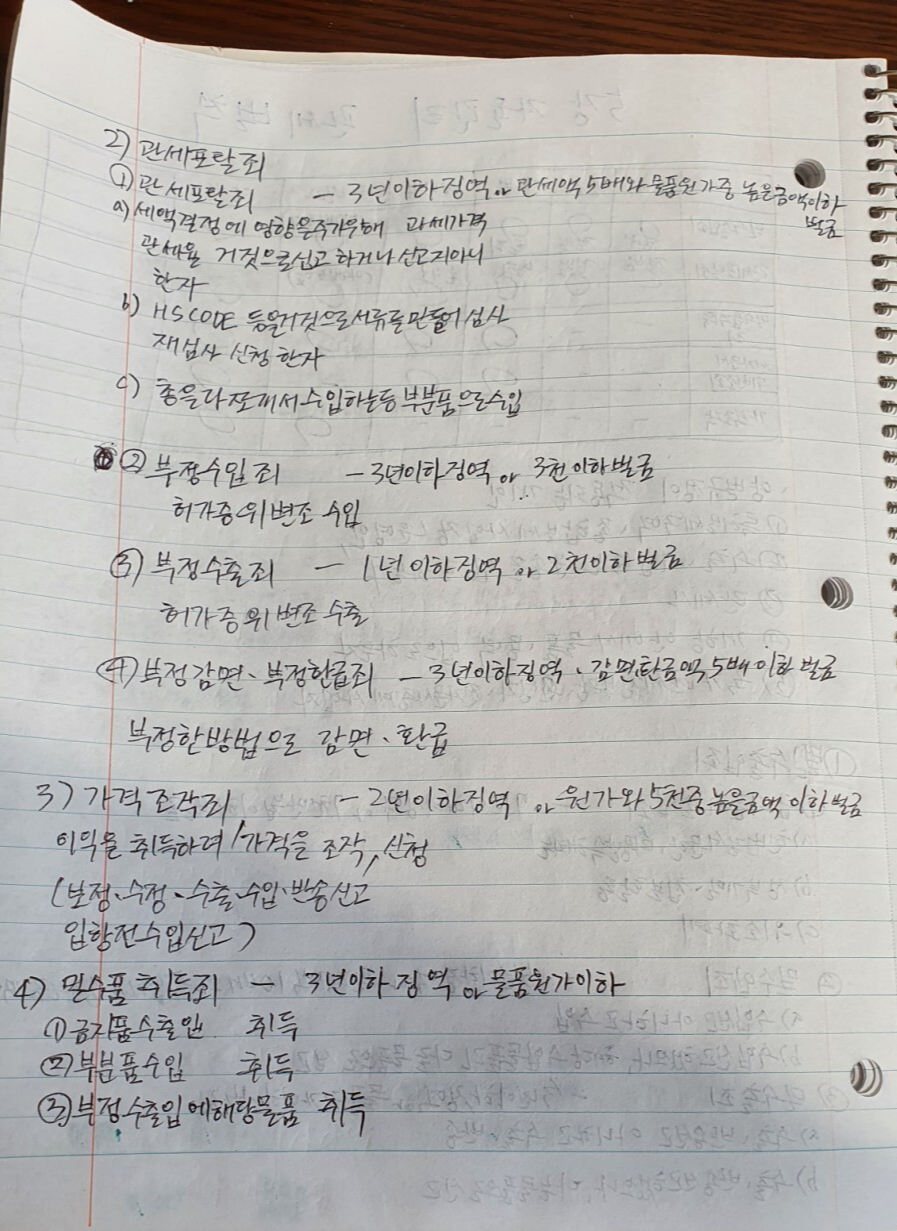 2) 관세포탈죄
① 관세포탈죄 - 3년이하징역 or 관세액 5배와 물품원가중 높은금액이하
벌금
a) 세액결정에 영향을주기위해 과세가격
관세율 거짓으로신고하거나 신고지아니
한자
b) HSCODE 등을거짓으로서류를만들어심사
재심사 신청한자
c) 수입하는등 부분품으로수입
② 부정수입죄 - 3년이하징역 or 3천이하벌금
허가증 위변조 수입
③ 부정수출죄 - 1년이하징역 or 2천이하벌금
허가증위변조 수출
④ 부정감면·부정환급죄 - 3년이하징역·감면탄금액5배이하벌금
부정한방법으로 감면·환급
3) 가격조작죄 - 2년이하징역 or 원가와5천중높은금액이하벌금
이익을 취득하려 가격을 조작, 신청
(보정·수정·수출·수입·반송신고
입항전수입신고)
4) 밀수품취득죄 - 3년이하징역 or 물품원가이하
①금지품수출입 취득
②부분품수입 취득
③부정수출입에해당물품 취득